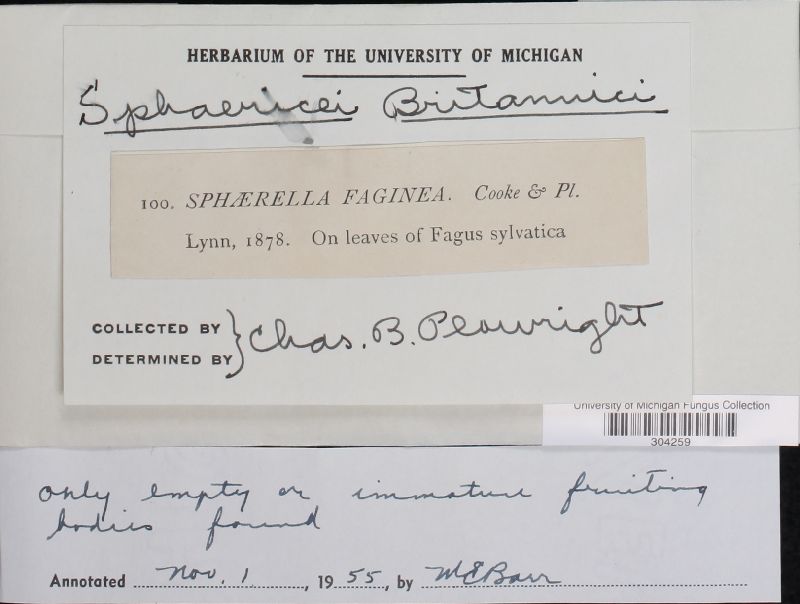 HERBARIUM OF THE UNIVERSITY OF MICHIGAN
Sphaericei Britannici
100. SPHÆRELLA FAGINEA. Cooke & Pl.
Lynn, 1878. On leaves of Fagus sylvatica
COLLECTED BY
DETERMINED BY } Chas. B. Plowright
University of Michigan Fungus Collection
304259
only empty or immature fruiting
bodies found
Annotated Nov. 1, 1955, by MEBarr